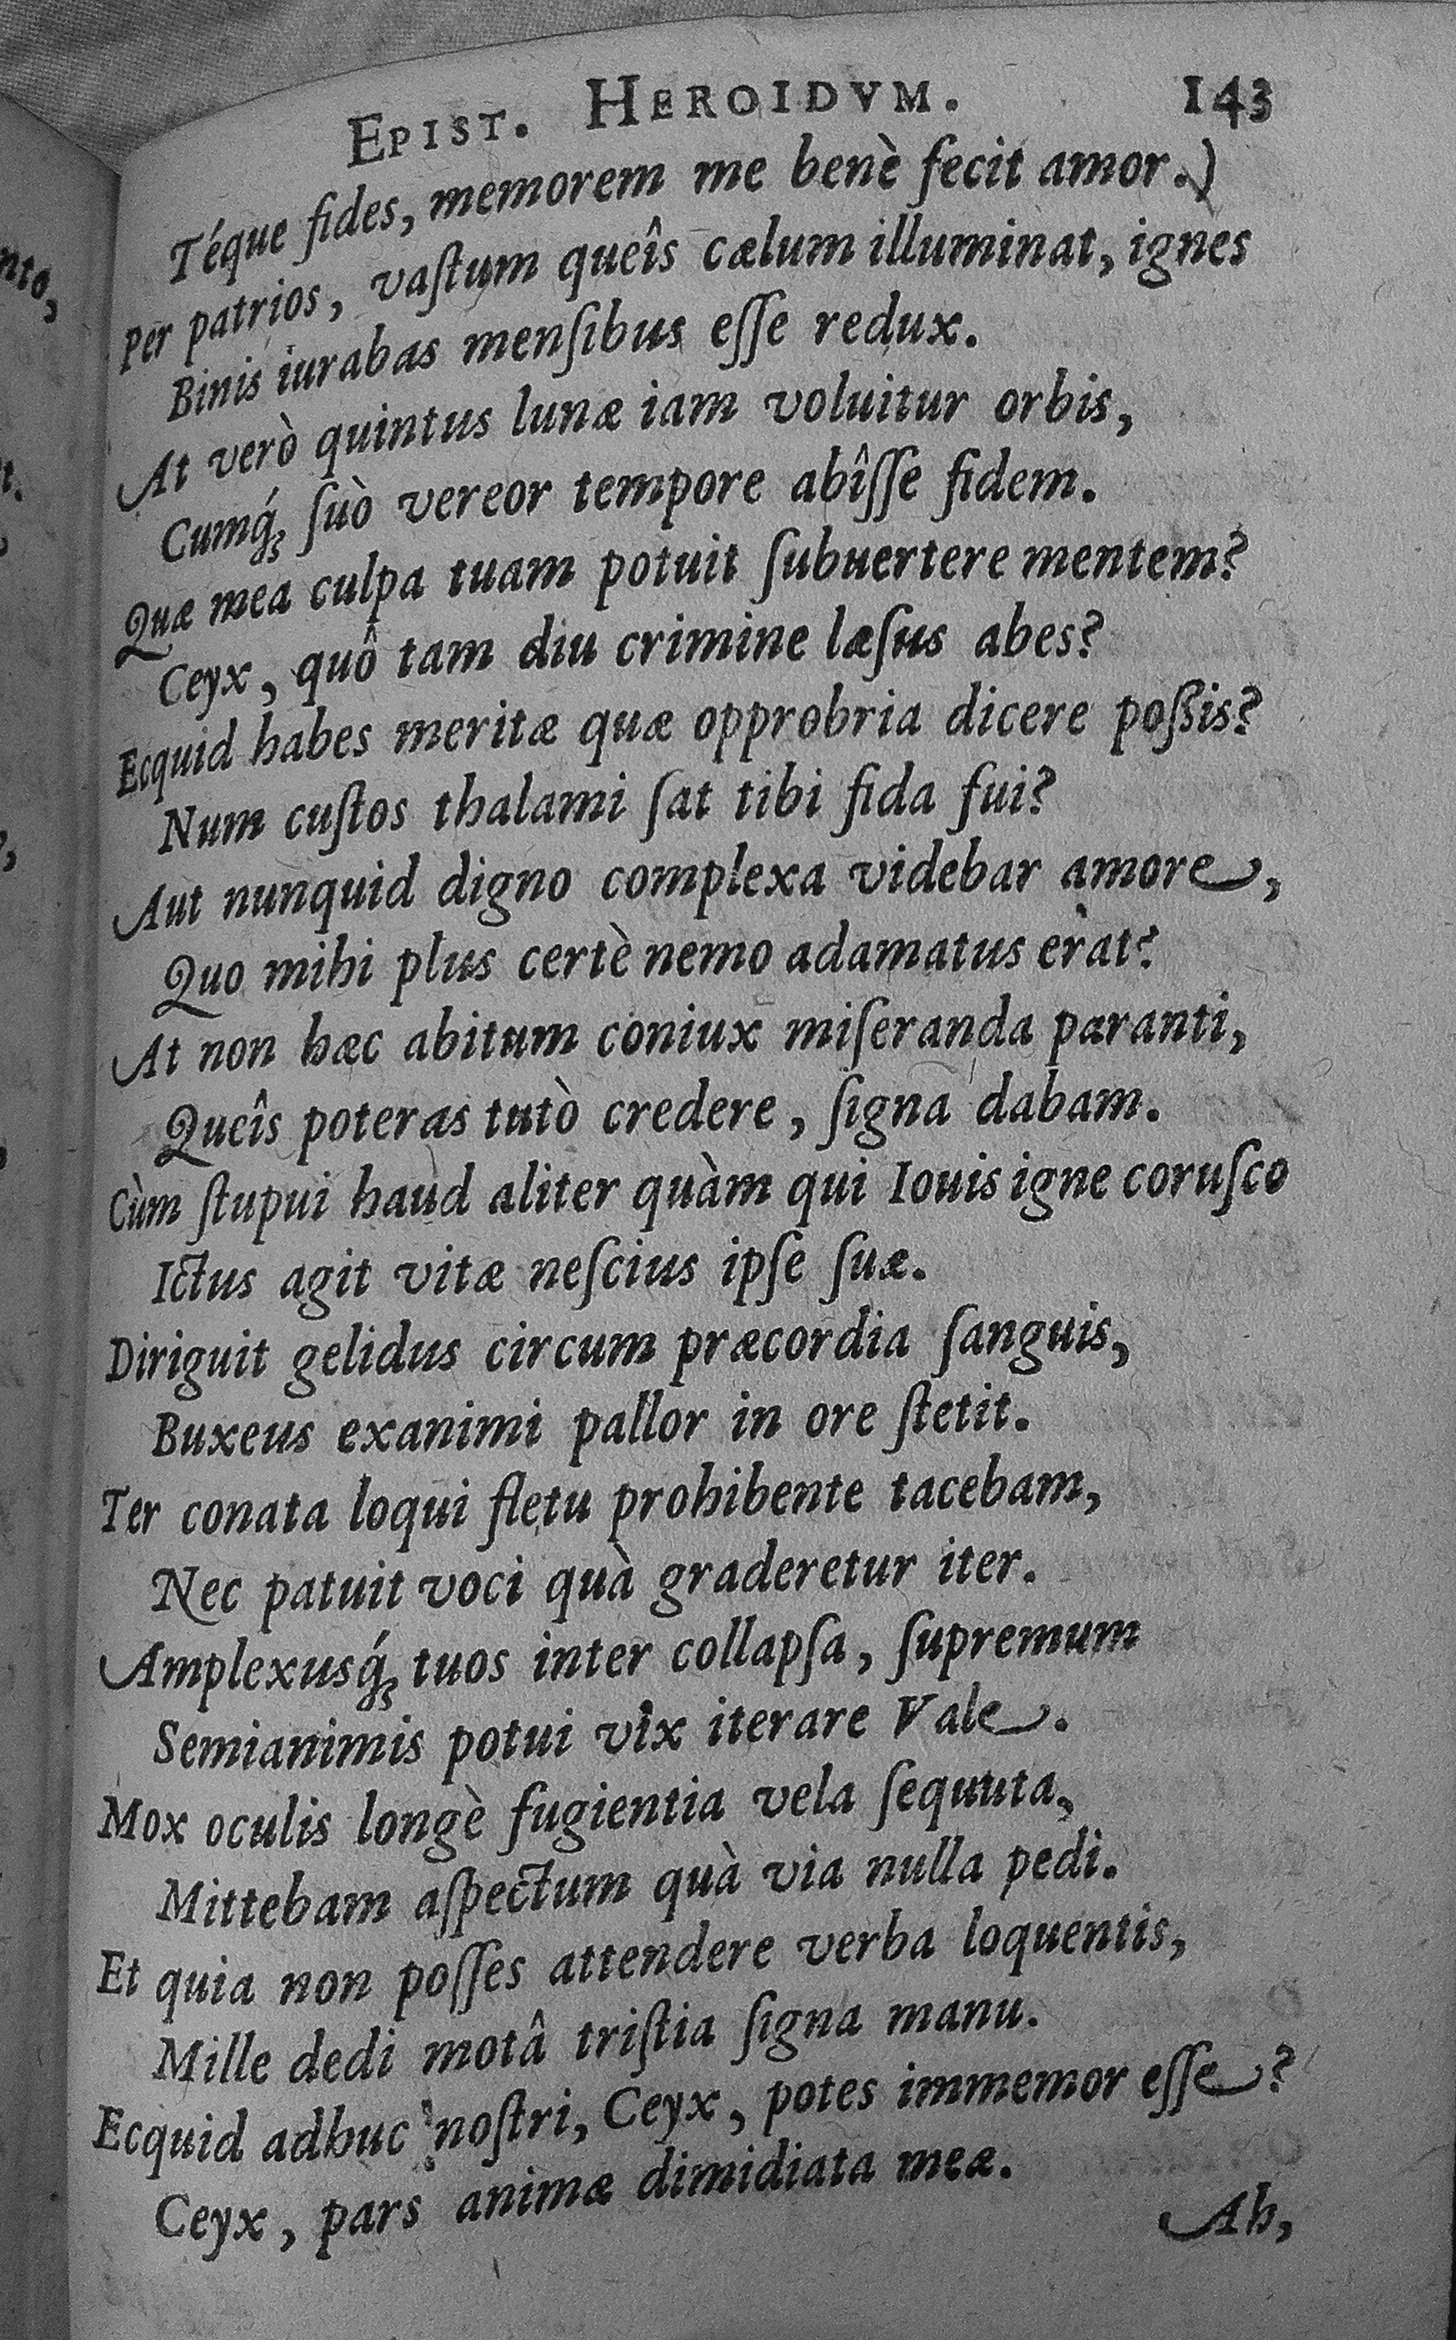 EPIST. HEROIDVM. 143
Téque fides, memorem me benè fecit amor.)
Per patrios, vaſtum queîs cælum illuminat, ignes
Binis iurabas menſibus eſſe redux.
At verò quintus lunæ iam voluitur orbis,
Cumq́ꝫ ſuò vereor tempore abîſſe fidem.
Quæ mea culpa tuam potuit ſubuertere mentem?
Ceyx, quô tam diu crimine læſus abes?
Ecquid habes meritæ quæ opprobria dicere poſsis?
Num cuſtos thalami ſat tibi fida fui?
Aut nunquid digno complexa videbar amore,
Quo mihi plus certè nemo adamatus erat?
At non hæc abitum coniux miſeranda paranti,
Queîs poteras tutò credere, ſigna dabam.
Cùm ſtupui haud aliter quàm qui Iouis igne coruſco
Ictus agit vitæ neſcius ipſe ſuæ.
Diriguit gelidus circum præcordia ſanguis,
Buxeus exanimi pallor in ore ſtetit.
Ter conata loqui fletu prohibente tacebam,
Nec patuit voci quà graderetur iter.
Amplexusq́ꝫ tuos inter collapſa, ſupremum
Semianimis potui vix iterare Vale.
Mox oculis longè fugientia vela ſequuta,
Mittebam aſpectum quà via nulla pedi.
Et quia non poſſes attendere verba loquentis,
Mille dedi motâ triſtia ſigna manu.
Ecquid adhuc noſtri, Ceyx, potes immemor eſſe?
Ceyx, pars animæ dimidiata meæ.
Ah,